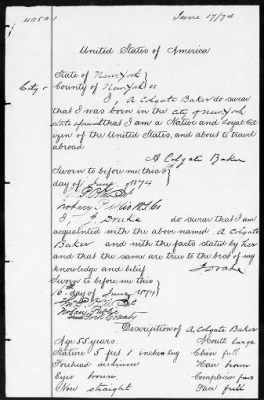 June 17/74
United States of America
State of New York }
City & County of New York } ss
I, A Colgate Baker do swear
that I was born in the City of New York
State aforesaid that I am a Native and Loyal Cit
izen of the United States, and about to travel
abroad
A Colgate Baker
Sworn to before me this }
day of June 1874 }
Notary Public
I J Drake do swear that I am
acquainted with the above named A Colgate
Baker and with the facts stated by her
and that the same are true to the best of my
knowledge and belief
J Drake
Sworn to before me this }
day of June 1874 }
Notary Public
Description of A Colgate Baker
Age 55 years. Mouth large
Stature 5 feet 1 inches Eng Chin full
Forehead medium Hair brown
Eyes brown Complexion fair
Nose straight Face full